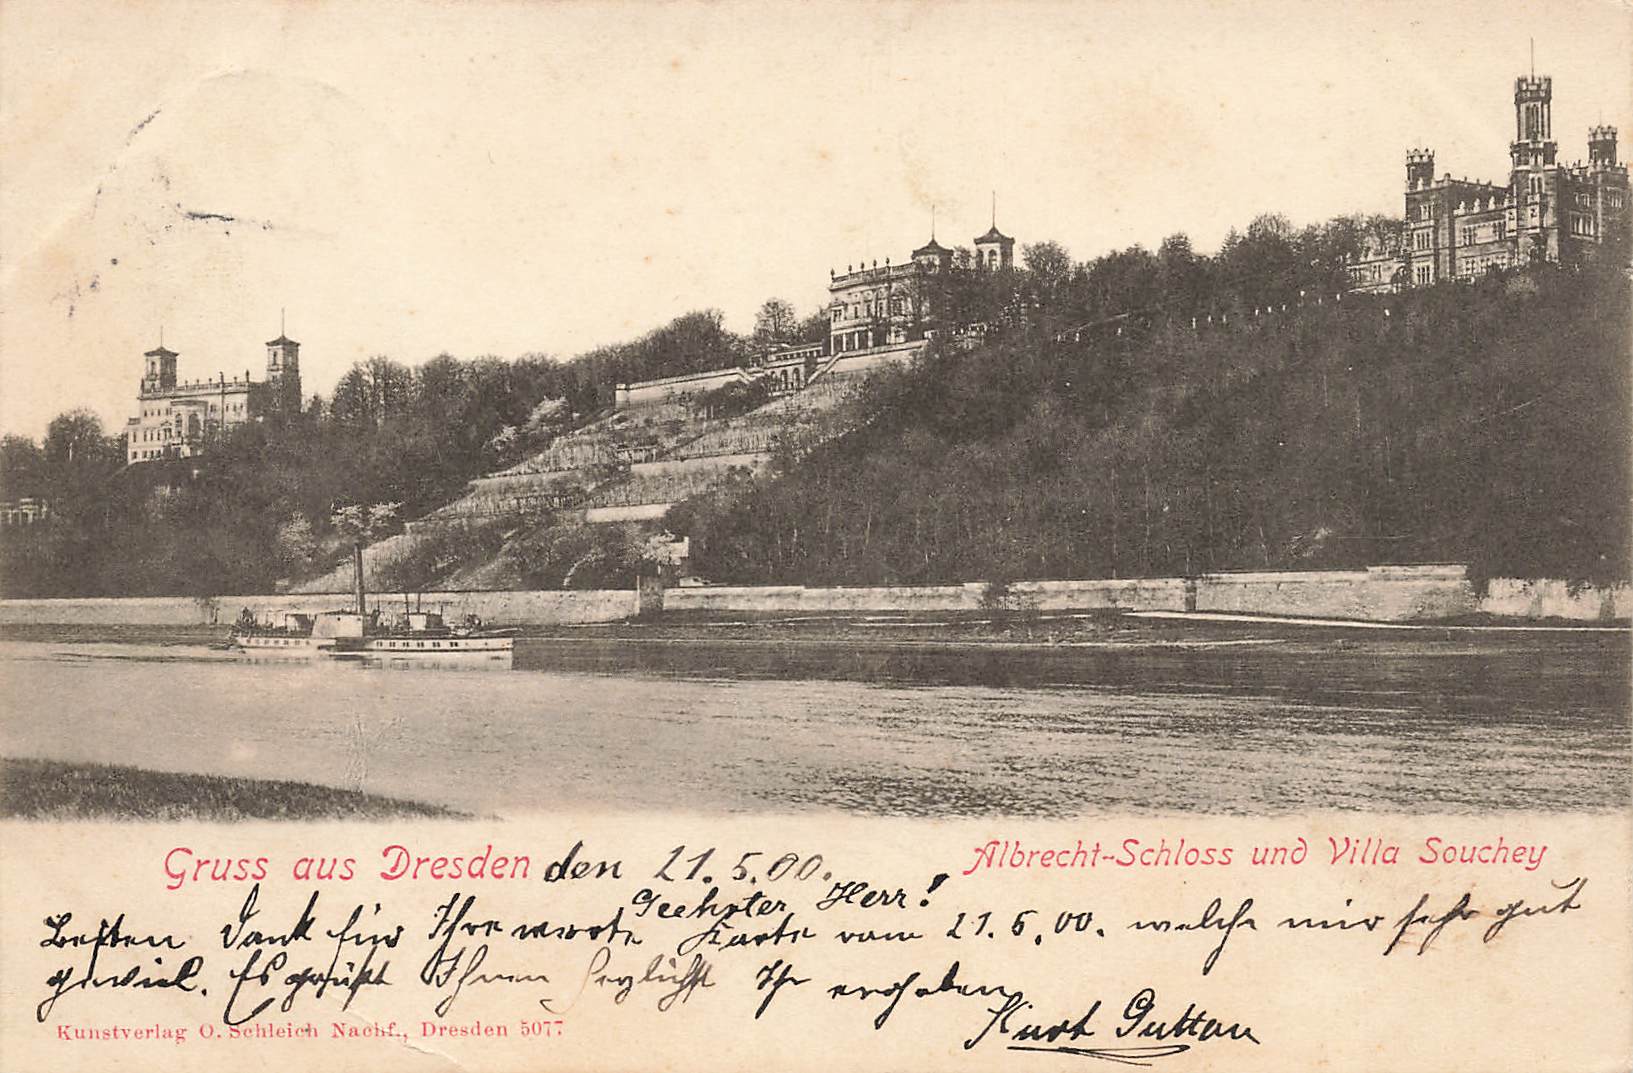 Gruss aus Dresden den 21. 5. 00.
Albrecht-Schloss und Villa Souchey
Geehrter Herr!
Besten Dank für Ihre werte Karte vom 21. 5. 00. welche mir sehr gut
geviel. Es grüßt Ihnen Ihr ergebener
Kurt
Kunstverlag O. Schleich Nachf., Dresden 5077